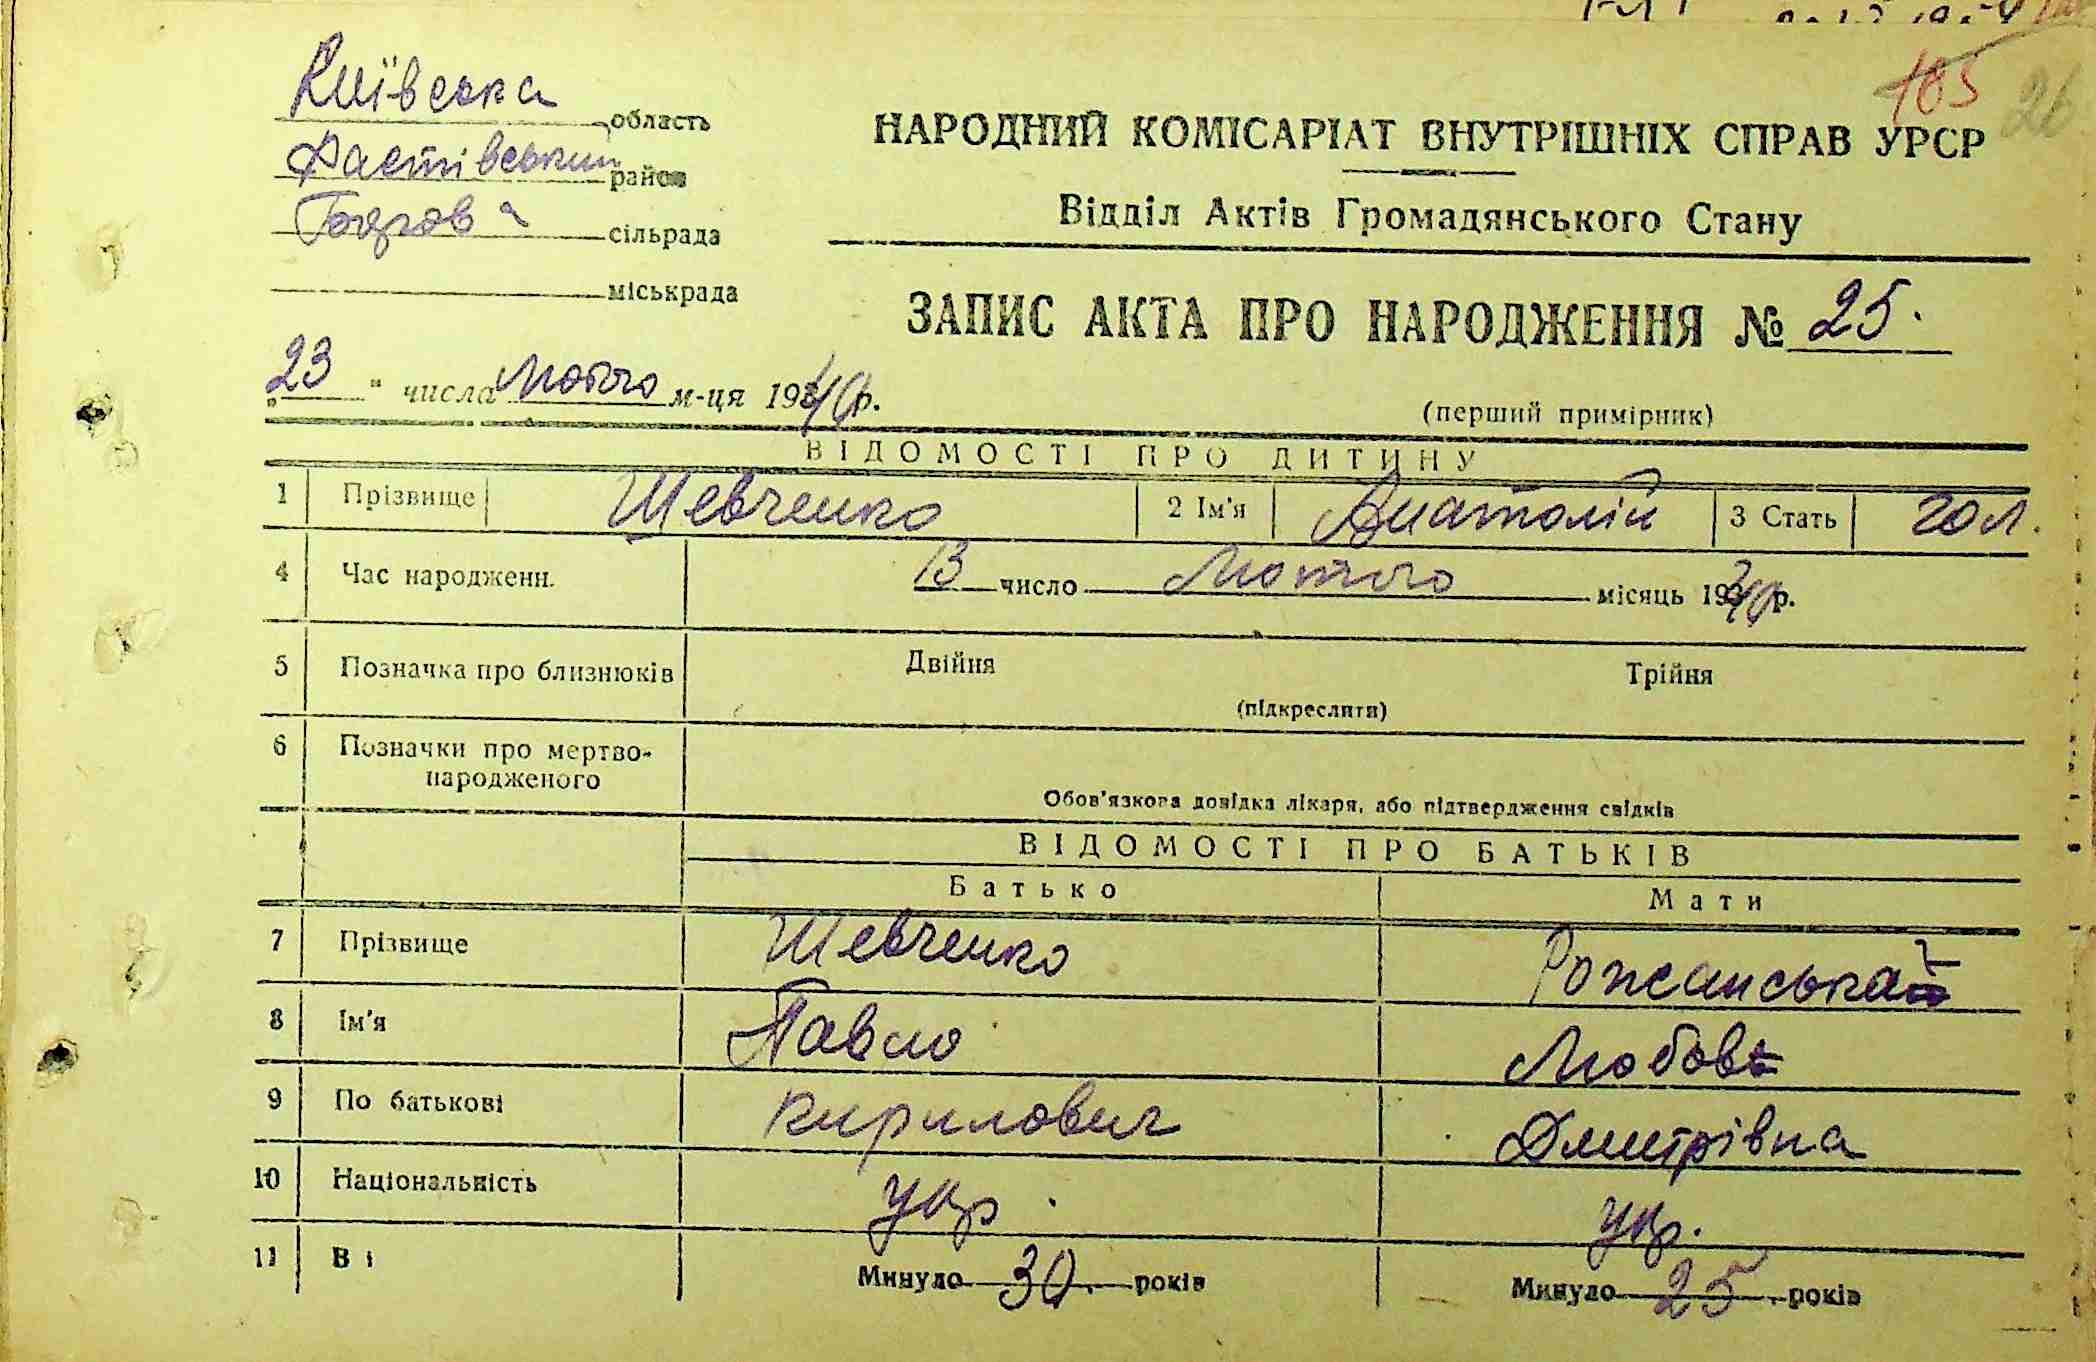 185 26
Київська область
Фастівський район
сільрада
міськрада
НАРОДНИЙ КОМІСАРІАТ ВНУТРІШНІХ СПРАВ УРСР
Відділ Актів Громадянського Стану
ЗАПИС АКТА ПРО НАРОДЖЕННЯ № 25.
„23" числа Лютого м-ця 1940р.
(перший примірник)
ВІДОМОСТІ ПРО ДИТИНУ
1 Прізвище Шевченко 2 Ім'я Анатолій 3 Стать чол.
4 Час народженн. 13 число Лютого місяць 1940р.
5 Позначка про близнюків Двійня Трійня
(підкреслити)
6 Позначки про мертво-
народженого
Обов'язкова довідка лікаря, або підтвердження свідків
ВІДОМОСТІ ПРО БАТЬКІВ
Батько Мати
7 Прізвище Шевченко Рожанська
8 Ім'я Павло Любов
9 По батькові Кирилович Дмитрівна
10 Національність укр. укр.
11 Ві Минуло 30 років Минуло 25 років